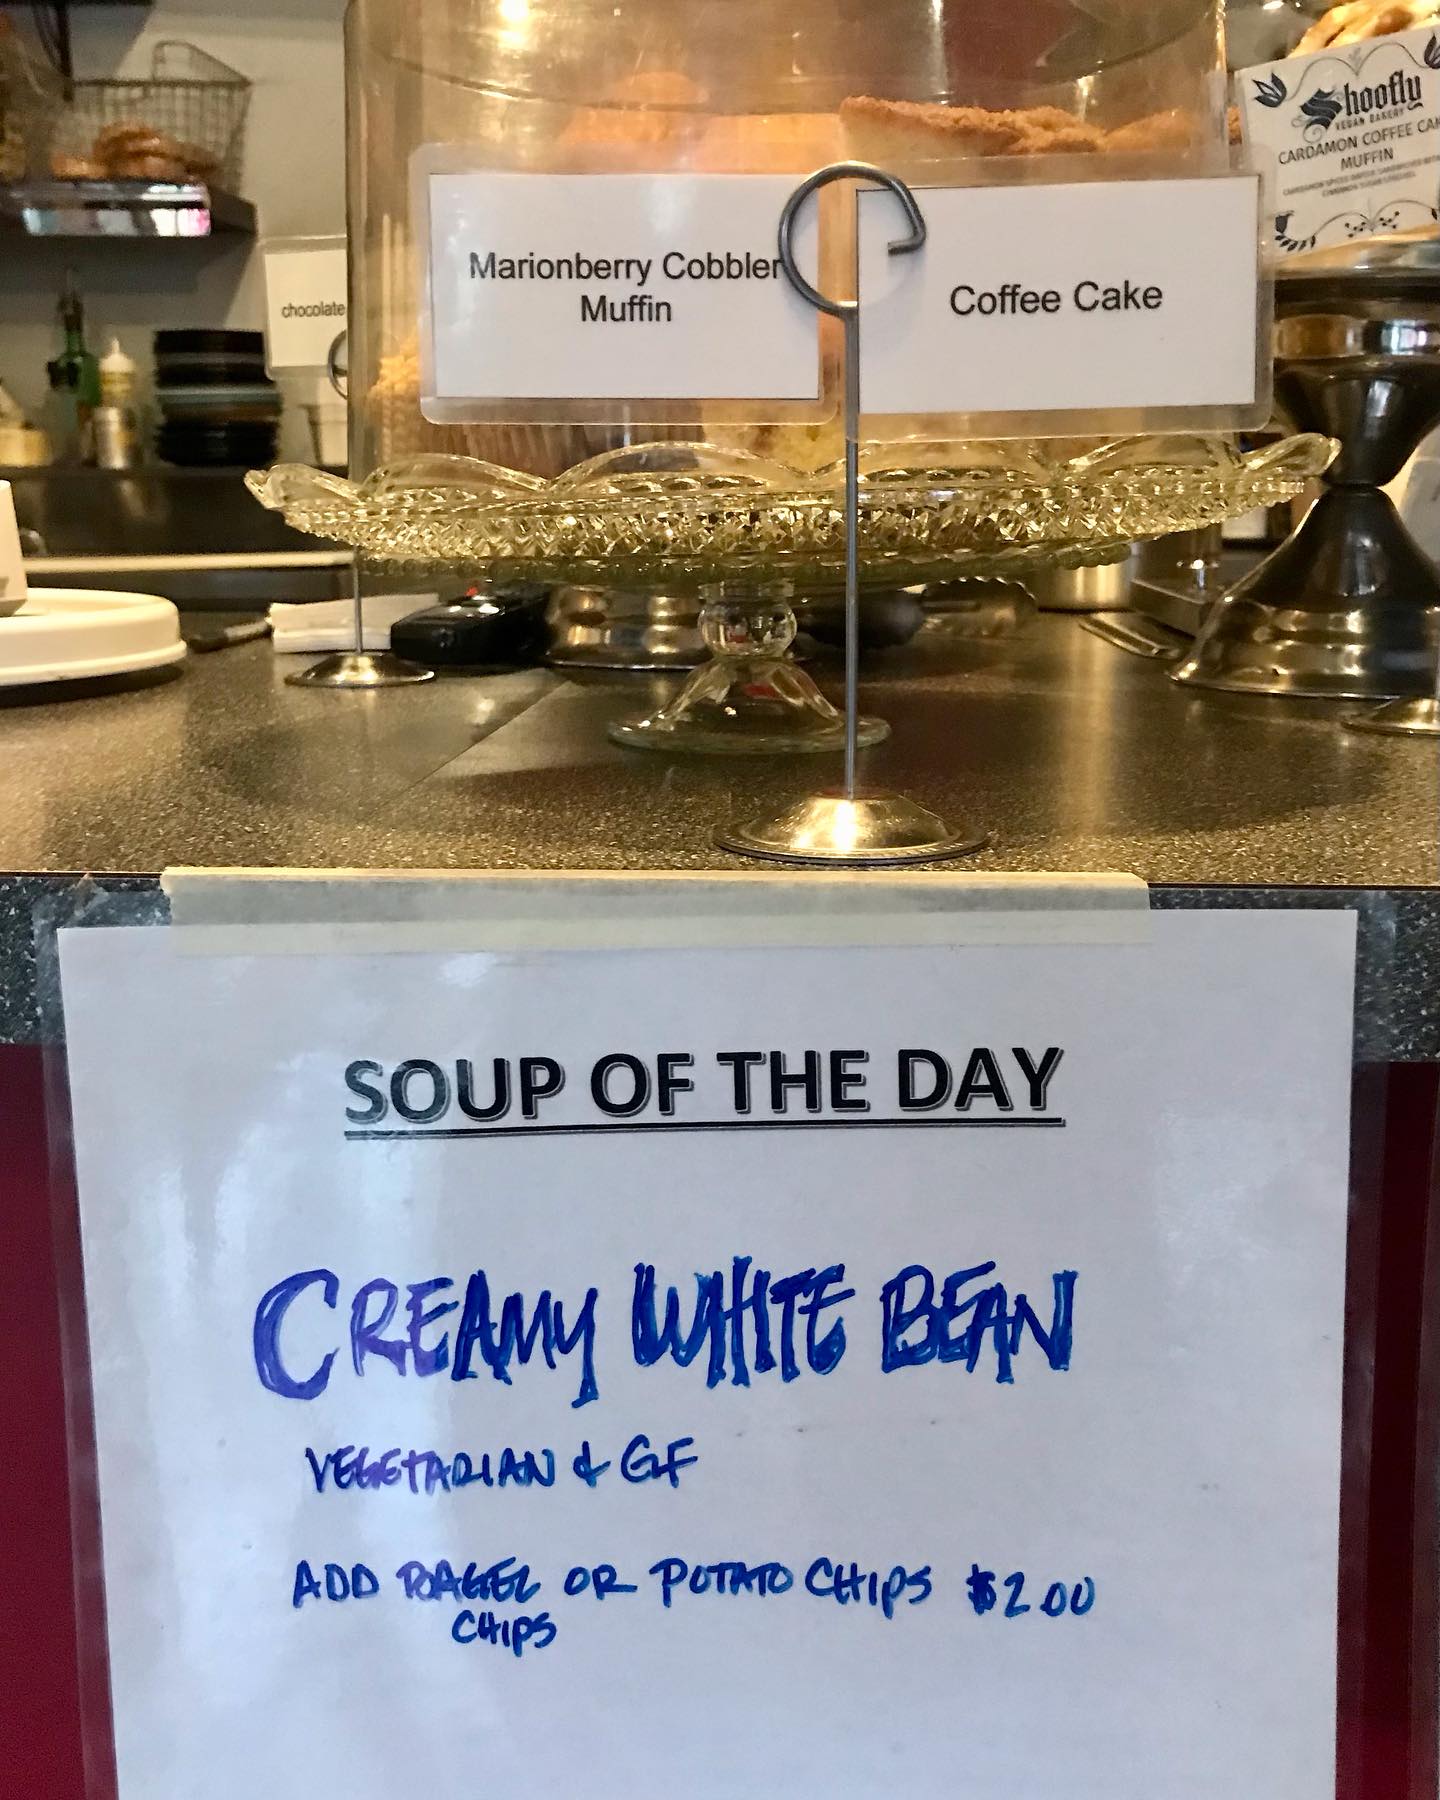 Shoofly
VEGAN BAKERY
CARDAMON COFFEE CAK
MUFFIN
Marionberry Cobbler
Muffin
Coffee Cake
chocolate
SOUP OF THE DAY
CREAMY WHITE BEAN
VEGETARIAN & GF
ADD BAGEL OR POTATO CHIPS $2.00
CHIPS